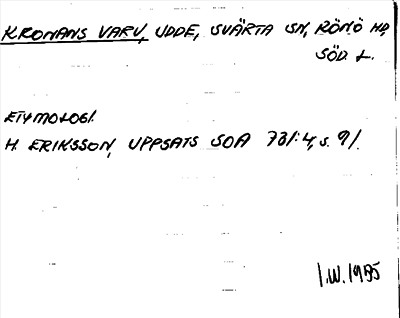 KRONANS VARV, UDDE, SVÄRTA SN, RÖNÖ HD,
SÖD. L.
ETYMOLOGI.
H. ERIKSSON, UPPSATS SOA 731:4, s. 91.
I.W. 1955